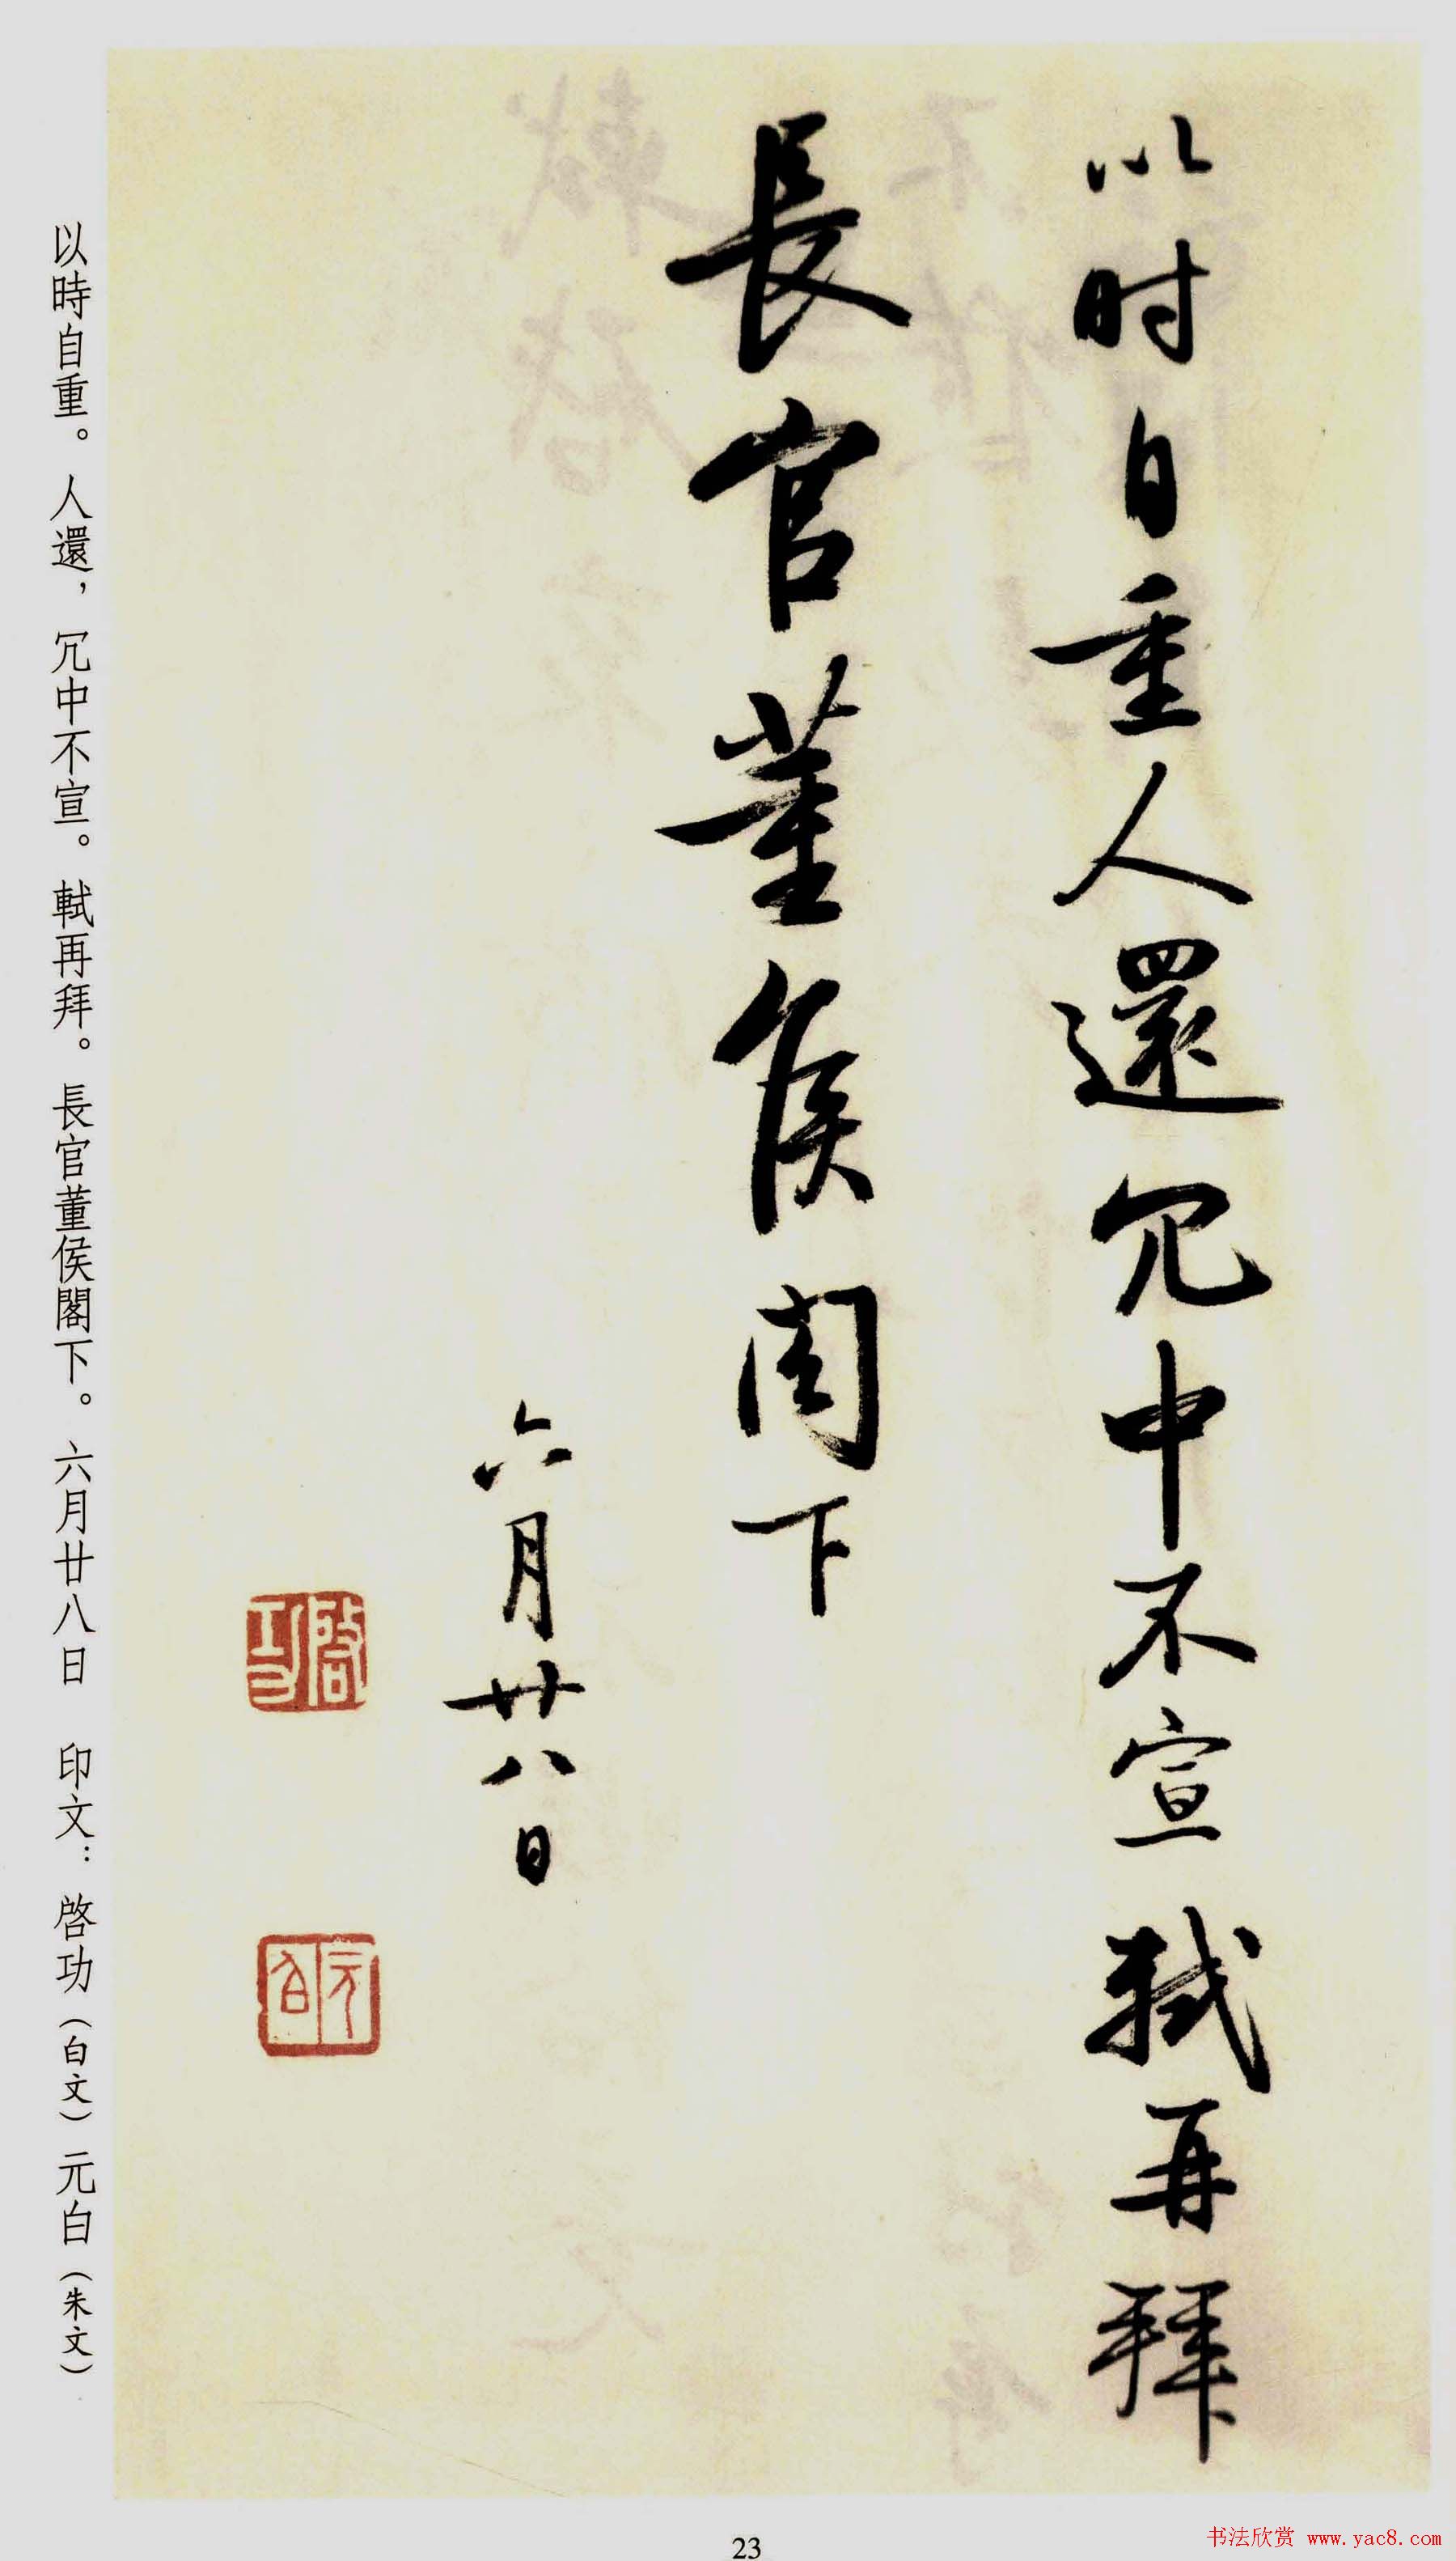 以时自重人還冗中不宣軾再拜
長官董侯閣下
六月廿八日
啓功
元白
以時自重。人還，冗中不宣。軾再拜。長官董侯閣下。六月廿八日 印文：啓功（白文）元白（朱文）
23
书法欣赏 www.yac8.com